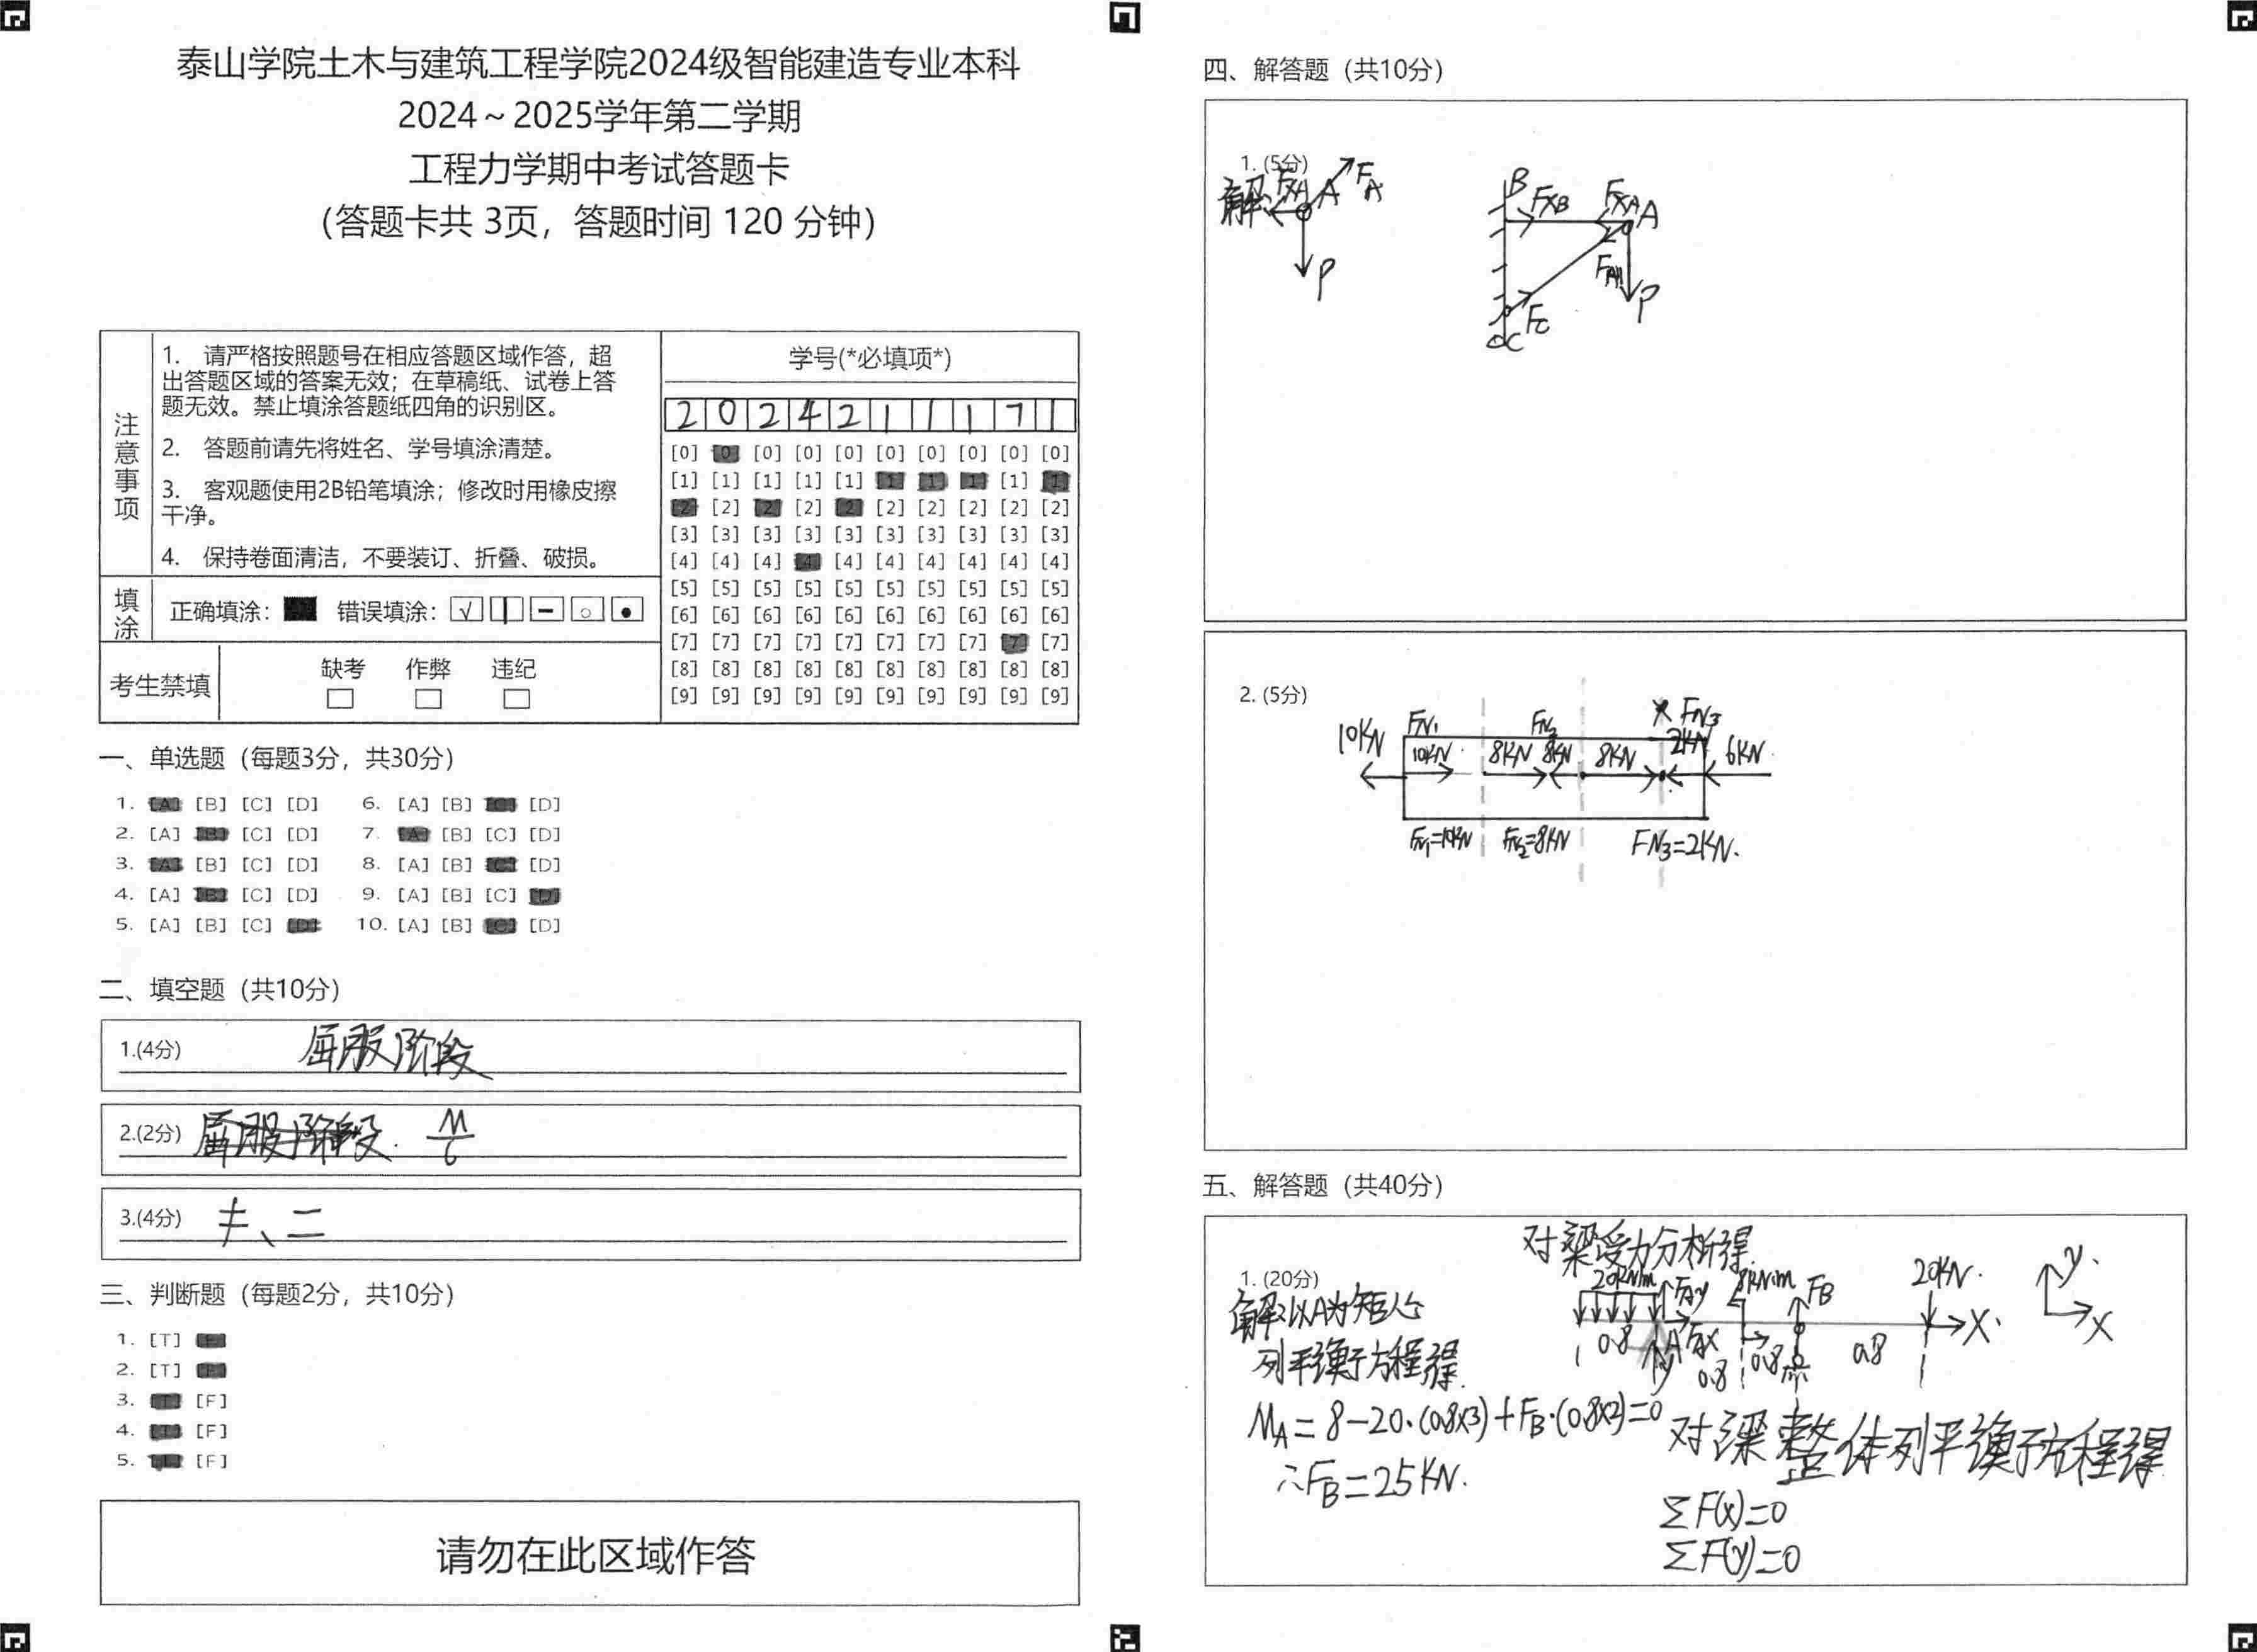 泰山学院土木与建筑工程学院2024级智能建造专业本科
2024～2025学年第二学期
工程力学期中考试答题卡
（答题卡共 3页，答题时间 120 分钟）
注意事项
1. 请严格按照题号在相应答题区域作答，超
出答题区域的答案无效；在草稿纸、试卷上答
题无效。禁止填涂答题纸四角的识别区。
2. 答题前请先将姓名、学号填涂清楚。
3. 客观题使用2B铅笔填涂；修改时用橡皮擦
干净。
4. 保持卷面清洁，不要装订、折叠、破损。
填涂
正确填涂： 错误填涂：
考生禁填
缺考 作弊 违纪
学号(*必填项*)
2 0 2 4 2 1 1 1 7 1
[0] [0] [0] [0] [0] [0] [0] [0] [0] [0]
[1] [1] [1] [1] [1] [1] [1] [1] [1] [1]
[2] [2] [2] [2] [2] [2] [2] [2] [2] [2]
[3] [3] [3] [3] [3] [3] [3] [3] [3] [3]
[4] [4] [4] [4] [4] [4] [4] [4] [4] [4]
[5] [5] [5] [5] [5] [5] [5] [5] [5] [5]
[6] [6] [6] [6] [6] [6] [6] [6] [6] [6]
[7] [7] [7] [7] [7] [7] [7] [7] [7] [7]
[8] [8] [8] [8] [8] [8] [8] [8] [8] [8]
[9] [9] [9] [9] [9] [9] [9] [9] [9] [9]
一、单选题（每题3分，共30分）
1. [A] [B] [C] [D] 6. [A] [B] [C] [D]
2. [A] [B] [C] [D] 7. [A] [B] [C] [D]
3. [A] [B] [C] [D] 8. [A] [B] [C] [D]
4. [A] [B] [C] [D] 9. [A] [B] [C] [D]
5. [A] [B] [C] [D] 10. [A] [B] [C] [D]
二、填空题（共10分）
1.(4分) 屈服阶段
2.(2分) 屈服阶段. M/6
3.(4分) 二
三、判断题（每题2分，共10分）
1. [T] [F]
2. [T] [F]
3. [T] [F]
4. [T] [F]
5. [T] [F]
请勿在此区域作答
四、解答题（共10分）
1. (5分)
解: FxA A FA
P
B FxB FxA A
FA P
C FC
2. (5分)
10KN FN1 FN2 FN3
10KN 8KN 8KN 8KN 2KN 6KN
FN1=10KN FN2=8KN FN3=2KN.
五、解答题（共40分）
1. (20分)
对梁受力分析得.
20KN/m FAy 8KN·m FB 20KN. y
0.8 A FAx 0.8 0.8 0.8 X. X
y
解:以A为矩心
列平衡方程得.
MA=8-20·(0.8×3)+FB·(0.8×2)=0
∴FB=25KN.
对梁整体列平衡方程得
ΣF(x)=0
ΣF(y)=0